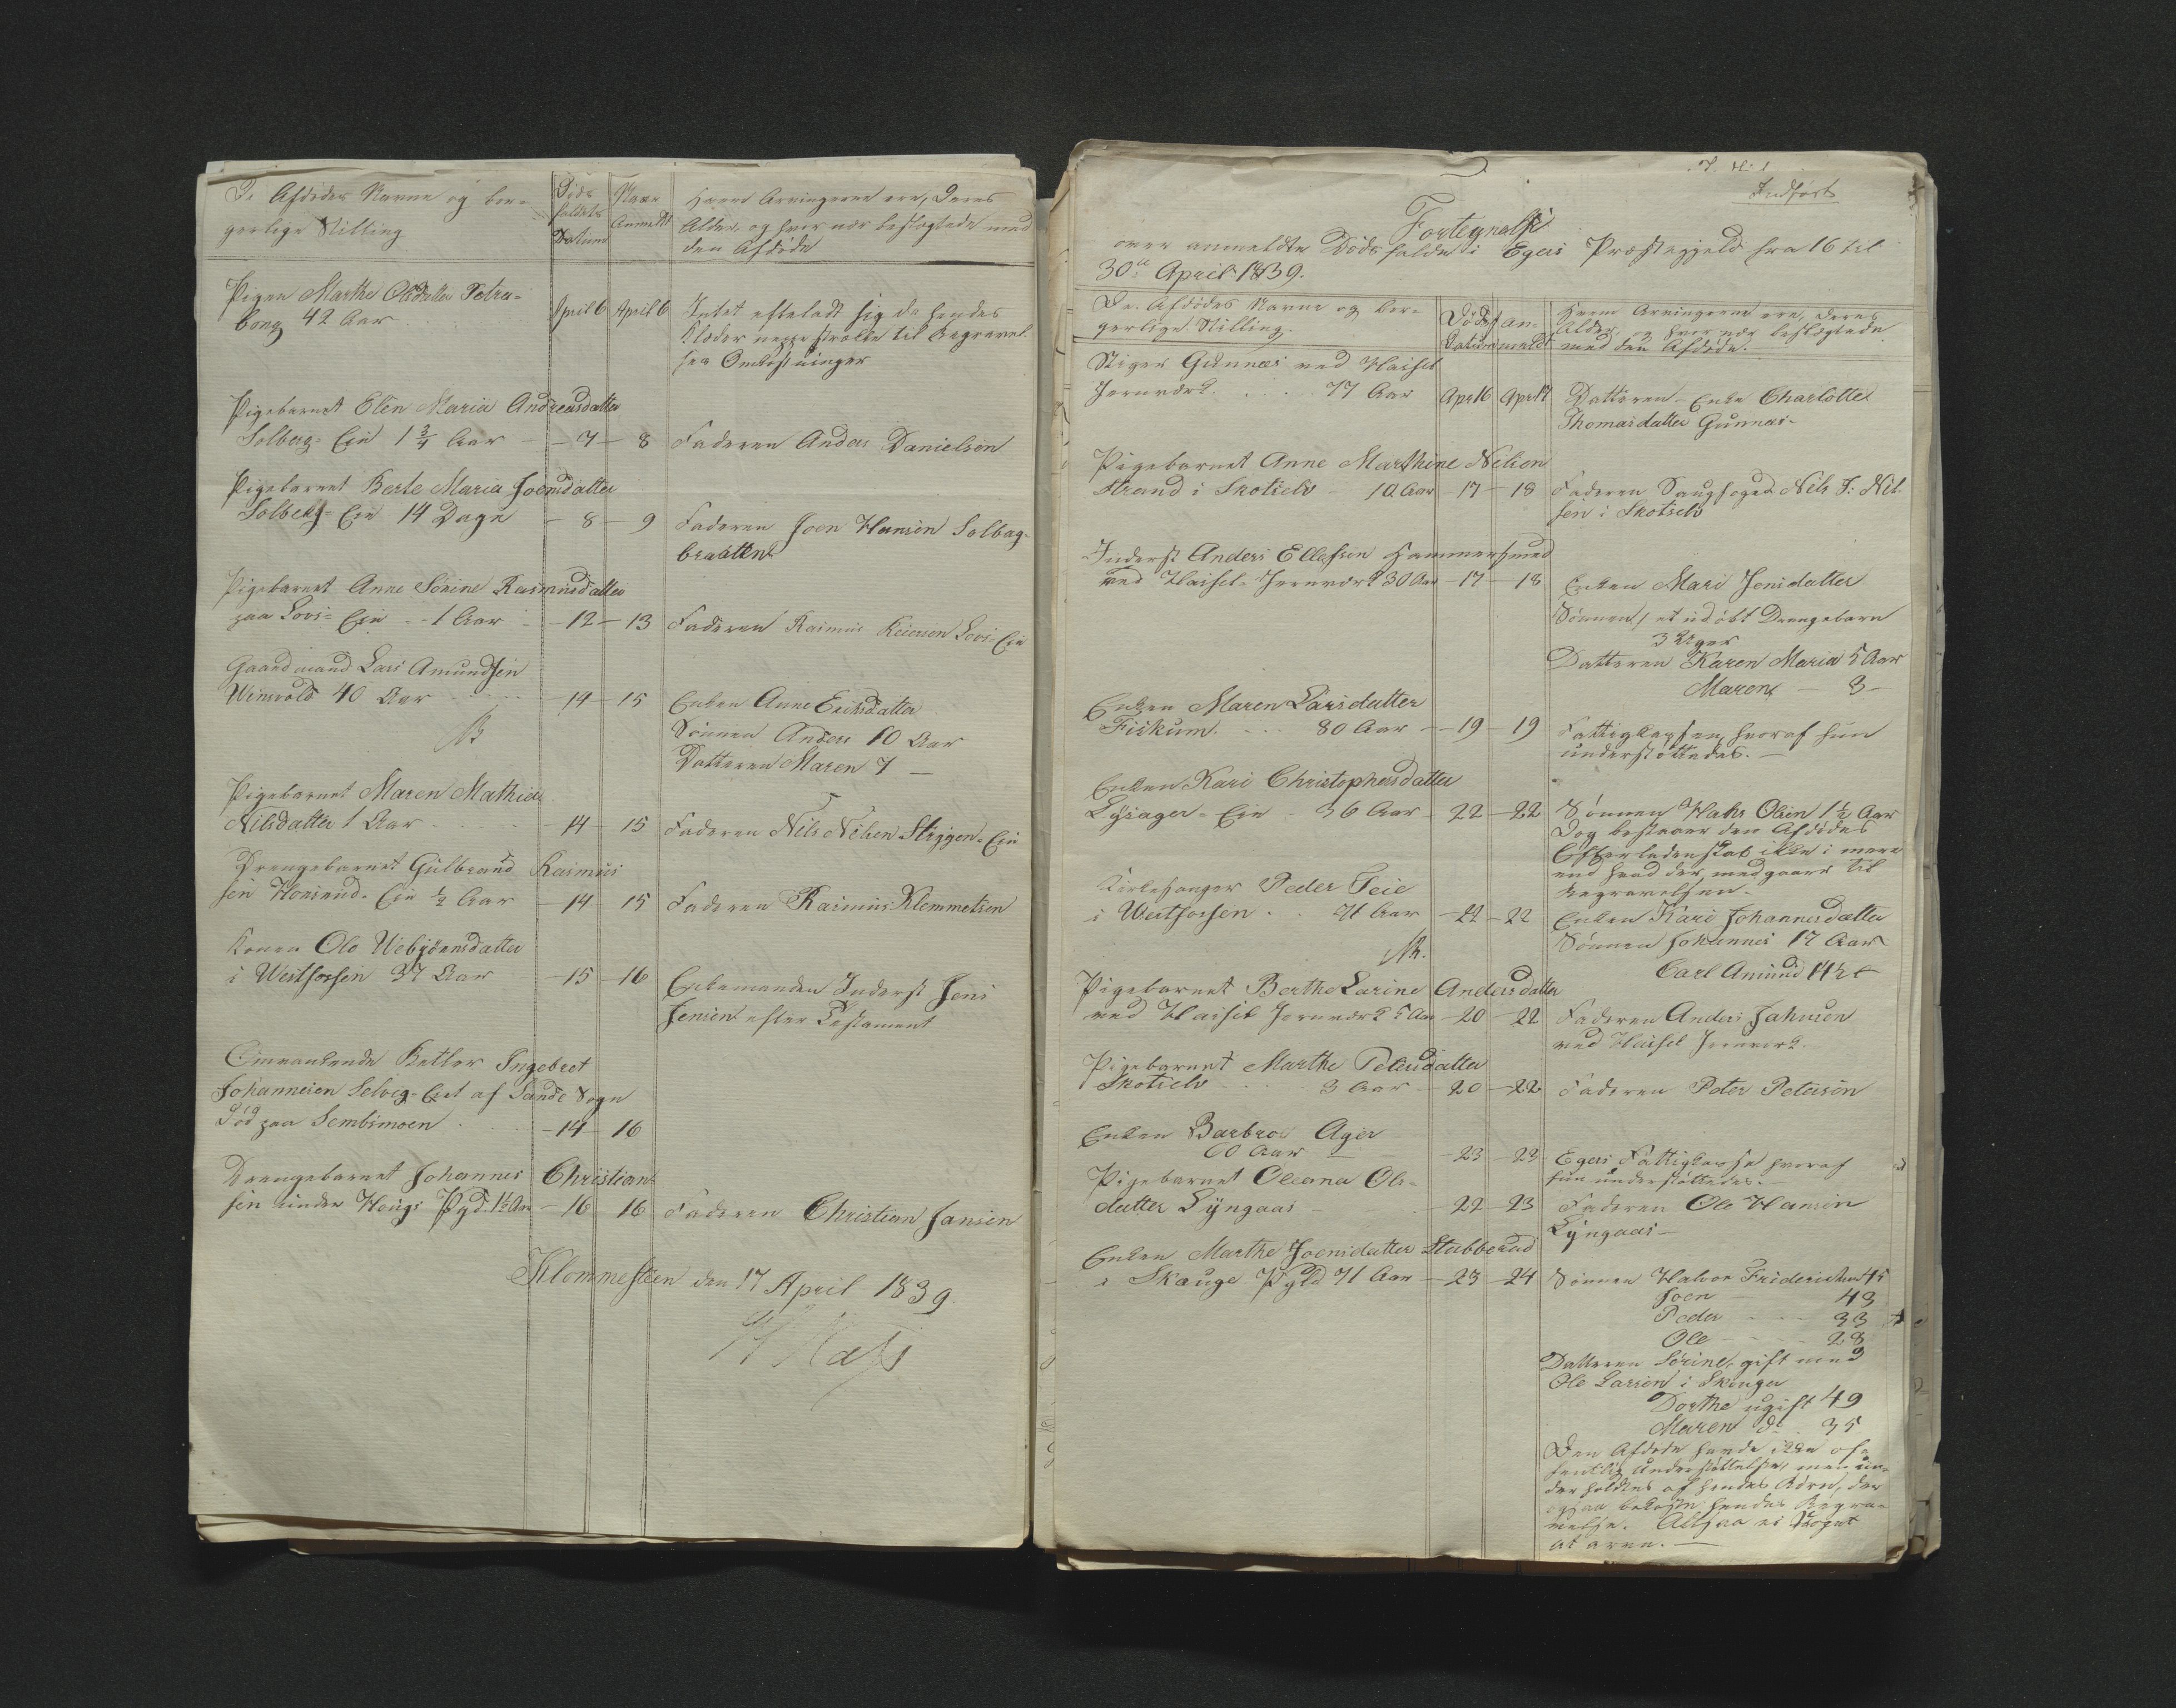 De Afdødes Navne og bor-
gerlige Stilling
Døds
faldets
Datum
Naar
Anmeldt
Hvem Arvingerne ere, Deres
Alder, og hvor nær beslægtede med
den Afdøde
Pigen Marthe Olsdatter
borg 42 Aar April 6 April 6 Intet efterladt sig da hendes
Klæder neppe strakte til Begravel-
sen Omkostninger
Pigebarnet Elen Maria Andreasdatter
Solberg-Eie 1 3/4 Aar - 7 - 8 Faderen Anders Danielsen
Pigebarnet Berte Maria Joensdatter
Solberg-Eie 14 Dage - 8 - 9 Faderen Joen Hansen Solberg-
braatten
Pigebarnet Anne Sorine Rasmusdatter
paa Loes-Eie - 1 Aar - 12 - 13 Faderen Rasmus Loes-Eie
Gaardmand Lars Amundsen
Winsvold 40 Aar - 14 - 15 Enken Anne Eriksdatter
Sønnen Anders 10 Aar
Datteren Maren 7 -
Pigebarnet Maren Mathea
Nilsdatter 1 Aar - 14 - 15 Faderen Nils Nilsen Strygen-Eie
Drengebarnet Gulbrand Rasmus
sen Horsrud-Eie 1/2 Aar - 14 15 Faderen Rasmus Klemmetsen
Konen Ole Webjørnsdatter
i Westfossen 37 Aar - 15 - 16 Enkemanden Inderst Jens
Jensen efter Testament
Omvankende Betler Ingebret
Johannesen Selvig-Eiet af Sande Sogn
Død paa Sembsmoen - 14 - 16
Drengebarnet Johannes Christian
sen under Hougs Pgd. 1 1/2 Aar - 16 16 Faderen Christian Jansen
Klommesteen den 17 April 1839.
Indført
Fortegnelse
over anmeldte Dødsfalde i Egers Præstegjeld fra 16 til
30te April 1839.
De Afdødes Navne og bor-
gerlige Stilling.
Døds
Datum
an-
meldt
Hvem Arvingerne ere, Deres
Alder, og hvor nær beslægtede
med den Afdøde.
Stiger Gunnæs ved Hassel
Jernværk. 77 Aar Apr 16 Apr 17 Datteren - Enke Charlotte
Thomasdatter Gunnæs-
Pigebarnet Anne Marthine Nilsen
Strand i Skotselv - 10 Aar - 17 - 18 Faderen Saugfoged Nils J. Nil-
sen i Skotselv
Inderst Anders Ellefsen Hammersmed
ved Hassel-Jernværk 30 Aar - 17 - 18 Enken Mari Jensdatter
Sønnen, et udøbt Drengebarn
3 Uger
Datteren Karen Maria 5 Aar
Maren - 3 -
Enken Maren Larsdatter
Fiskum. 80 Aar - 19 - 19 Fattigkassen, hvoraf hun
understøttedes. -
Enken Kari Christophersdatter
Lysager-Eie - 36 Aar - 22 - 22 Sønnen Hans Olsen 1 1/2 Aar
Dog bestaaer den Afdødes
Efterladenskab ikke i mere
end hvad der medgaaer til
Begravelsen.
Kirkesanger Peder Teie
i Westfossen. 71 Aar - 21 - 22 Enken Kari Johannesdatter
Sønnen Johannes 17 Aar
Carl Amund 14 1/2
Pigebarnet Berthe Larine Andersdatter
ved Hassel Jernværk 5 Aar - 20 - 22 Faderen Anders Jahnsen
ved Hassel Jernværk.
Pigebarnet Marthe Petersdatter
Skotselv 3 Aar - 20 - 22 Faderen Peter Petersen
Enken Barbroe Ager
60 Aar - 23 - 23 Egers Fattigkasse hvoraf
hun understøttedes. -
Pigebarnet Oleana Ols-
datter Lyngaas - 22 - 23 Faderen Ole Hansen
Lyngaas -
Enken Marthe Joensdatter Stubberud
i Skouge Pgld 71 Aar - 23 - 24 Sønnen Halvor Fridrichsen 45
Joen 43
Peder 33
Ole 28
Datteren Sørine, gift med
Ole Larsen i Skouger
Dorthe ugift 49
Maren do. 35
Den Afdøde havde ikke of-
fentlig Understøttelse, men un-
derholdtes af hendes Børn, der
ogsaa bekoste hendes Begra-
velse. Altsaa ei Noget
at arve. -